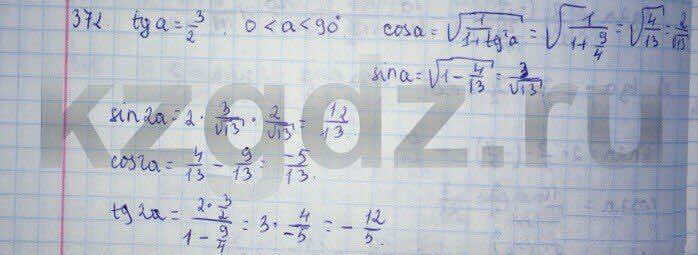 372 tg a = 3/2 0 < a < 90° cos a = √(1/(1+tg²a)) = √(1/(1+9/4)) = √(4/13) = 2/√13
sin a = √(1 - 4/13) = 3/√13
sin 2a = 2 · 3/√13 · 2/√13 = 12/13.
cos 2a = 4/13 - 9/13 = -5/13.
tg 2a = (2 · 3/2)/(1 - 9/4) = 3 · 4/-5 = - 12/5.
kzgdz.ru